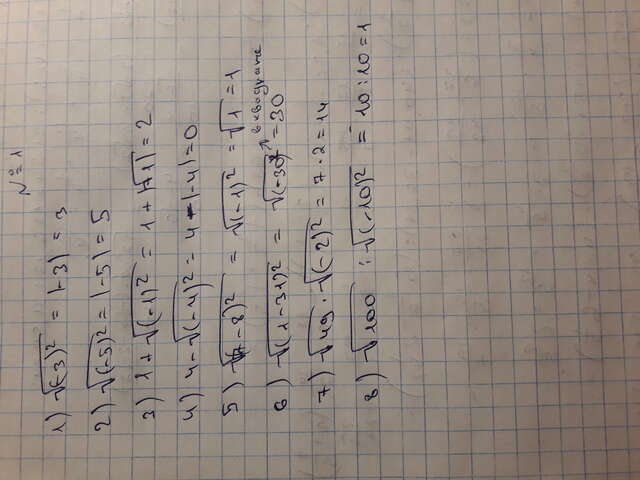 № 1
1) √(-3)² = |-3| = 3
2) √(-5)² = |-5| = 5
3) 1 + √(-1)² = 1 + |√1| = 2
4) 4 - √(-4)² = 4 - |-4| = 0
5) √(7-8)² = √(-1)² = √1 = 1
6) √(1-31)² = √(-30)² = 30 в квадрате
7) √49 · √(-2)² = 7 · 2 = 14
8) √100 : √(-10)² = 10 : 10 = 1